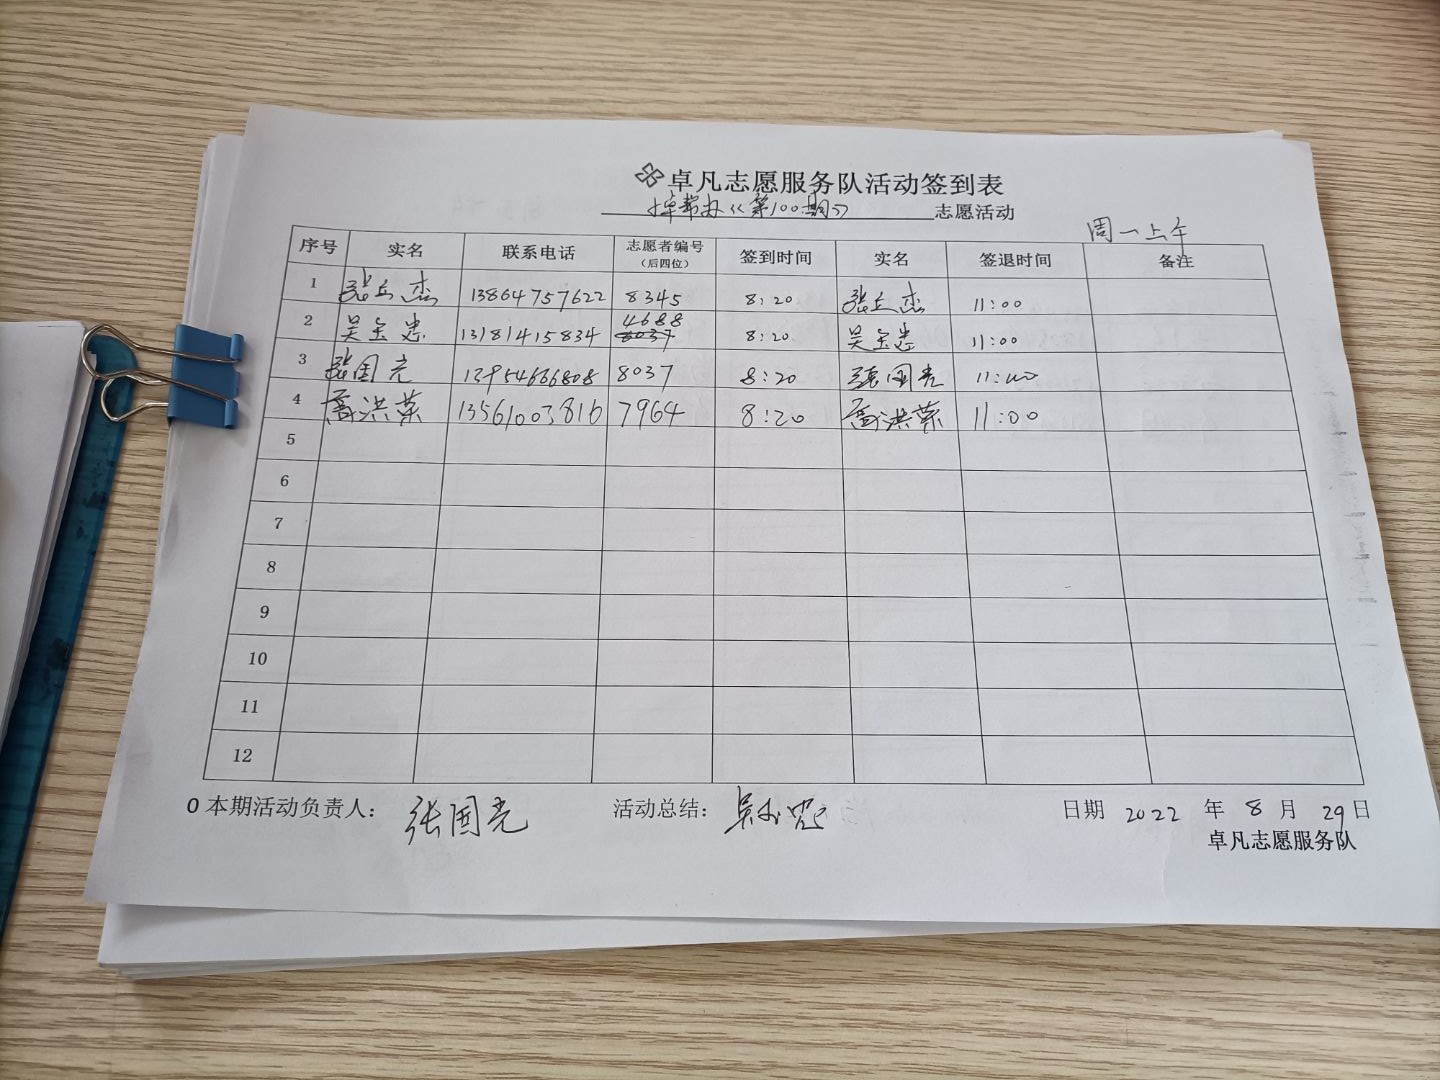 卓凡志愿服务队活动签到表
帮办《第100期》 志愿活动
周一上午
序号 实名 联系电话 志愿者编号（后四位） 签到时间 实名 签退时间 备注
1 张立杰 13864757622 8345 8:20 张立杰 11:00
2 吴全忠 13181415834 4688 8:20 吴全忠 11:00
3 张国亮 12954666808 8037 8:20 张国亮 11:00
4 高洪荣 13561003816 7964 8:20 高洪荣 11:00
5
6
7
8
9
10
11
12
0 本期活动负责人： 张国亮 活动总结： 日期 2022 年 8 月 29 日
卓凡志愿服务队